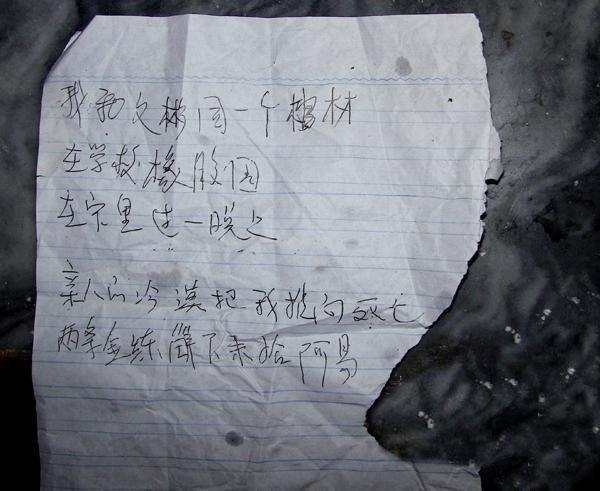 我和文彬同一个棺材
在学校橡胶园
在家里过一晚上
亲人的冷漠把我推向死亡
两条金链留下来给阿易